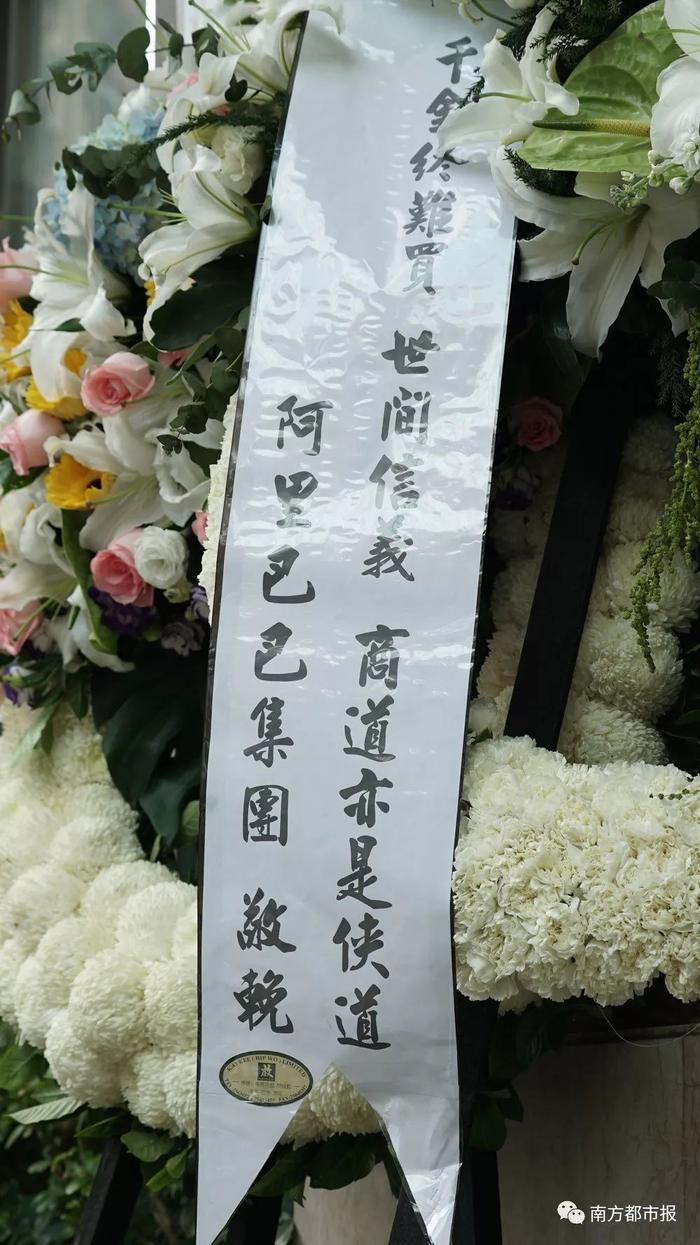 千金終難買 世間信義 商道亦是俠道
阿里巴巴集團 敬輓
KAY KEE (HIP WO) LIMITED
南方都市报